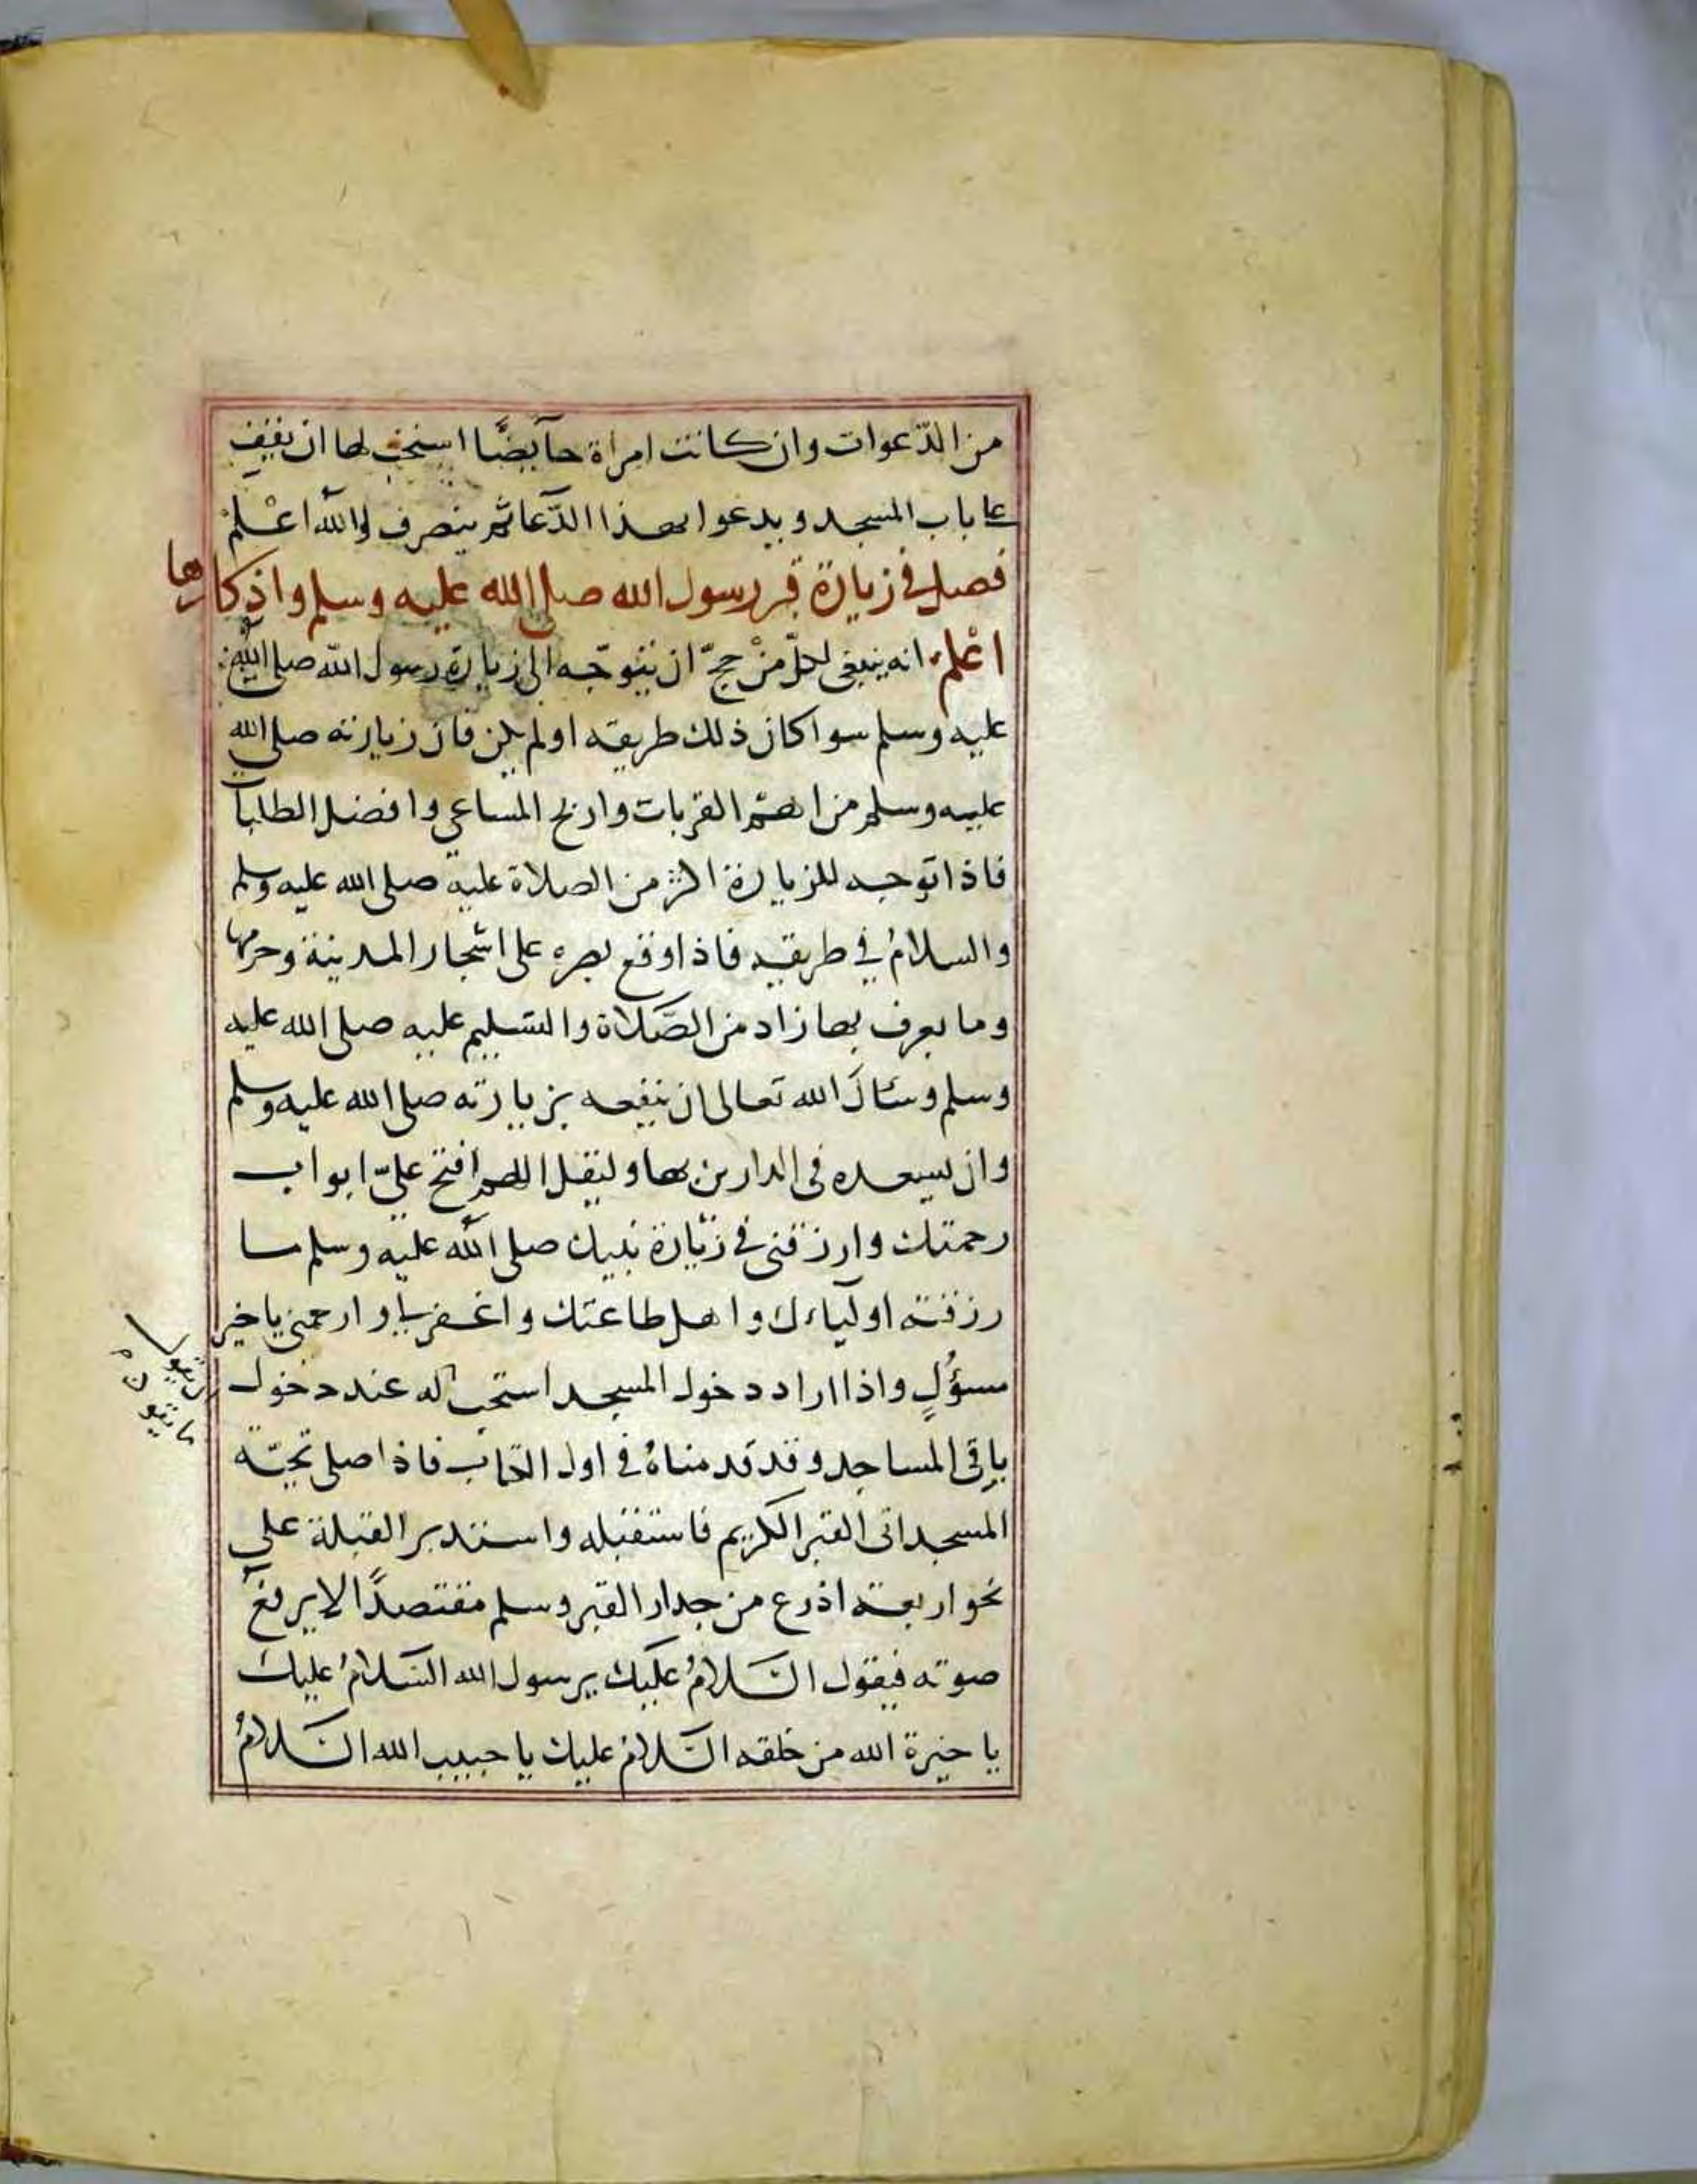 من الدّعوات وان كانت امراة حآيضًا استحب لها ان تقف
على باب المسجد وبدعوا بهذا الدّعا ثم ينصرف والله اعْلمْ
فصل في زيارة قبر رسول الله صلى الله عليه وسلم واذكارها
اعْلم انه ينبغى لكلّ منْ حجّ ان يتوجّه الى زيارة رسول الله صلى الله
عليه وسلم سوا كان ذلك طريقه او لم يكن فان زيارته صلى الله
عليه وسلم من اهم القربات واربح المساعي وافضل الطلبات
فاذا توجه للزيارة اكثر من الصلاة عليه صلى الله عليه وسلم
والسلامُ في طريقه فاذا وقع بصره على اشجار المدينة وحرمها
وما يعرف بها زاد من الصّلاة والتسليم عليه صلى الله عليه
وسلم وسَال الله تعالى ان ينفعه بزيارته صلى الله عليه وسلم
وان يسعده فى الدارين بها وليقل اللهم افتح عليّ ابواب
رحمتك وارزقنى في زيارة نبيك صلى الله عليه وسلم ما
رزقته اولياءك واهل طاعتك واغفرلي وارحمني يا خير
مسؤُلٍ واذا اراد دخول المسجد استحب له عند دخول
باقى المساجد وقد قدمناهُ في اول الكتاب فاذا صلى تحيّة
المسجد اتى القبر الكريم فاستقبله واستدبر القبلة على
نحو اربعة اذرع من جدار القبر وسلم مقتصدًا لا يرفع
صوته فيقول السّلامُ عليك يرسول الله السّلامُ عليك
يا خيرة الله من خلقه السّلامُ عليك يا حبيب الله السّلامُ
ان يقول
ما يقول